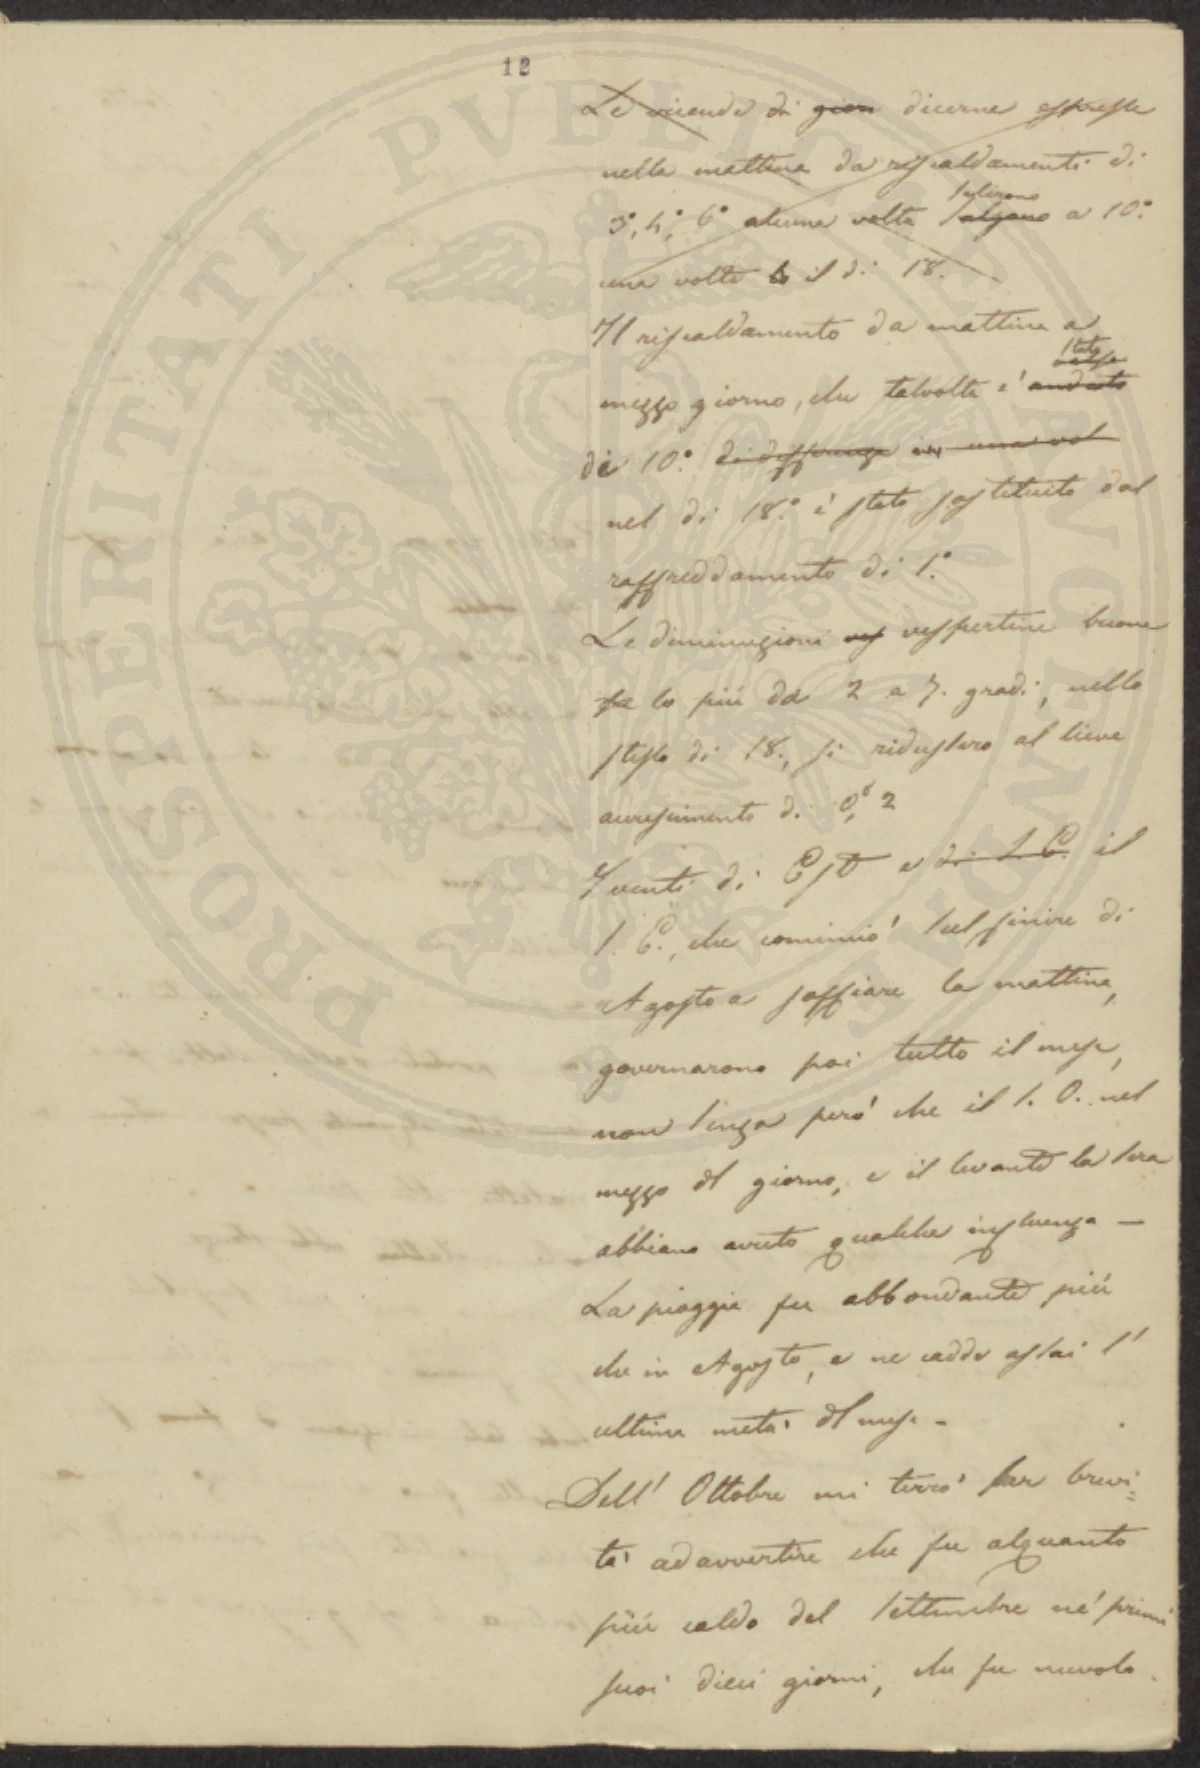 12
PROSPERITATI PVBLICAE AVGENDAE
Le vicende di gior diurne espresse
nella mattina da riscaldamenti di
salirono
3°, 4°, 6° alcuna volta salgono a 10.°
una volta lo il dì 18.
Il riscaldamento da mattina a
stato
mezzo giorno, che talvolta è andato
di 10.° di differenza in una vol
nel dì 18.° è stato sostituito dal
raffreddamento di 1.°
Le diminuzioni ves vespertine buone
lo più da 2 a 7. gradi, nello
stesso dì 18., si ridussero al lieve
accrescimento di 0,°2
I venti di Est e di S. E. il
S. E., che cominciò sul finire di
Agosto a soffiare la mattina,
governarono poi tutto il mese,
non senza però che il S. O. nel
mezzo del giorno, e il levante la sera
abbiano avuto qualche influenza —
La pioggia fu abbondante più
che in Agosto, e ne cadde assai l'
ultima metà del mese -
Dell' Ottobre mi terrò per brevi=
tà ad avvertire che fu alquanto
più caldo del Settembre né primi
suoi dieci giorni, che fu nuvolo.